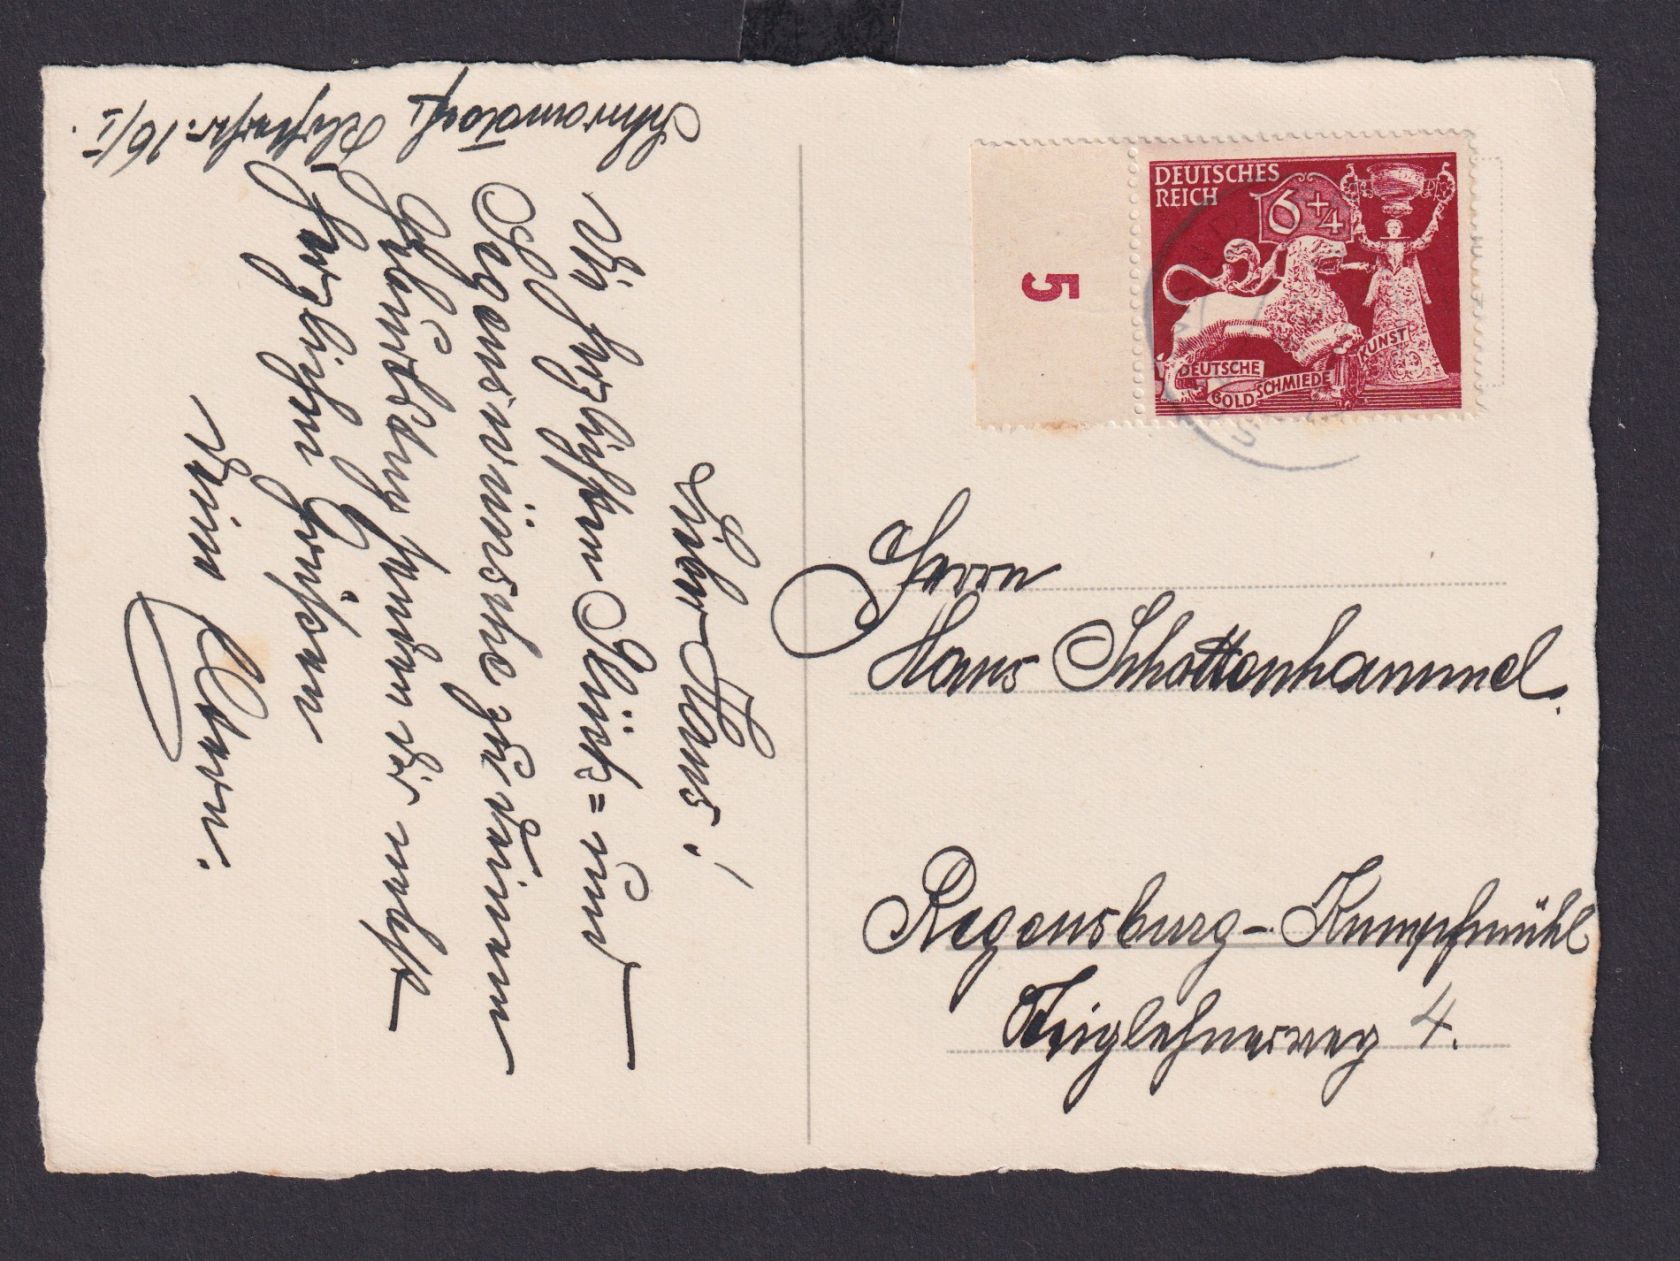 Lieber Hans!
Die herzlichsten Glück= und
Segenswünsche zu Deinem
Geburtstag senden Dir nebst
herzlichen Grüßen
Deine Eltern.
16/I.
DEUTSCHES
REICH
6+4
DEUTSCHE
GOLDSCHMIEDE
KUNST
5
Herrn
Hans Schottenhammel.
Regensburg-Kumpfmühl
Ziuglehnerweg 4.